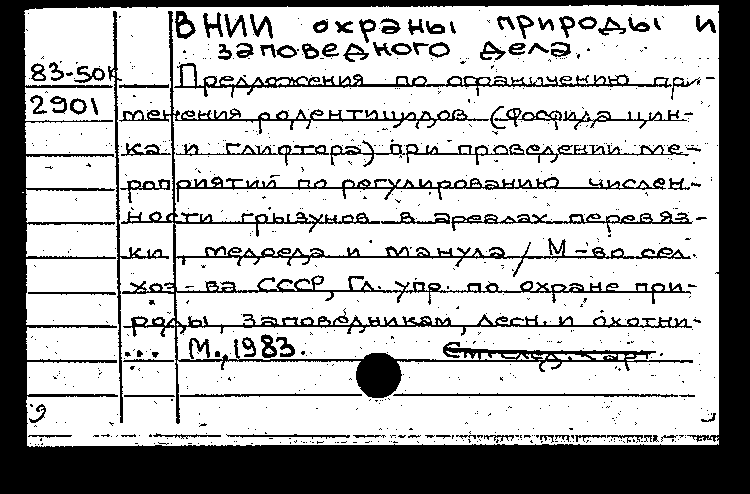 ВНИИ охраны природы и
заповедного дела.
83-50к Предложения по ограничению при-
2901 менения родентицидов (Фосфида цин-
ка и глифтора) при проведении ме-
роприятий по регулированию числен-
ности грызунов в ареалах перевяз-
ки, медоеда и манула / М-во сел.
хоз-ва СССР, Гл. упр. по охране при-
роды, заповедникам, лесн. и охотни-
... М., 1983.